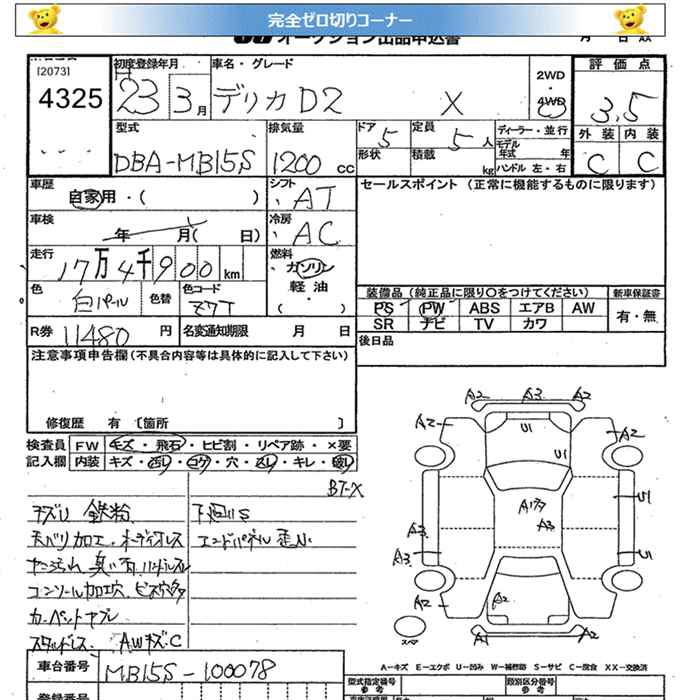 完全ゼロ切りコーナー
オークション出品申込書
[2073]
4325
初度登録年月
H 23 3月
車名・グレード
デリカD2 X
2WD
・
4WD
評価点
3.5
外装 内装
C C
型式
DBA-MB15S
排気量
1200 cc
ドア 5
形状
定員 5人
積載 kg
ディーラー・並行
モデル年式 年
ハンドル 左・右
車歴
自家用・( )
シフト
AT
セールスポイント (正常に機能するものに限ります)
車検
年 月( 日)
冷房
AC
走行
17万4千900km
燃料
ガソリン
軽油
( )
色
白パール
色替
色コード
Z7T
装備品 (純正品に限り○をつけてください)
新車保証書
PS PW ABS エアB AW
有・無
SR ナビ TV カワ
R券 11480 円
名変通知期限 月 日
後日品
注意事項申告欄(不具合内容等は具体的に記入して下さい)
修復歴 有 [箇所 ]
検査員
記入欄
FW キズ・飛石・ヒビ割・リペア跡・×要
内装 キズ・汚レ・コゲ・穴・スレ・キレ・破レ
BT-X
キズU 鉄粉
下回りS
天ベリ加工、オーディオレス
エンドパネル歪ル
コンソール加工穴、ビス穴多
カーペットヤブレ
スタッドレス AWキズ・C
A2 A3 A2
A2 U1 A2
U1
U1
A3
A3
A3
U1
A2 A2
A1 A2
スペア
A-キズ E-エクボ U-凹み W-補修跡 S-サビ C-腐食 XX-交換済
車台番号
MB15S-100078
型式指定番号
参考
類別区分番号
参考
登録番号